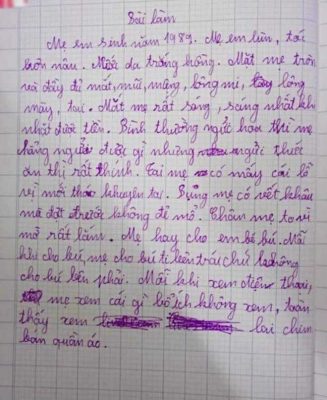 Bài làm
Mẹ em sinh năm 1989. Mẹ em lùn, tóc
hơn nâu. Mữa da trắng hồng. Mặt mẹ tròn
và đầy đủ mắt, mũi, mồng, bông mi, lông
mày, tai. Mắt mẹ rất sáng, sáng nhất khi
nhặt được tiền. Bình thường ngửi hoa thì mẹ
chẳng ngửi được gì nhưng ngửi thiết
ăn thì rất thính. Tai mẹ có mấy cái lỗ
vì mới tháo khuyên tai. Bụng mẹ có vết khâu
mà đợt trước không đẻ mổ. Chân mẹ to vì
mỡ rất lắm. Mẹ hay cho em bé bú. Mỗi
khi cho bú, mẹ cho bú ti bên trái chứ không
cho bú bên phải. Mỗi khi xem điện thoại,
mẹ xem cái gì bổ ích không xem, toàn
thấy xem lai chim
bán quần áo.